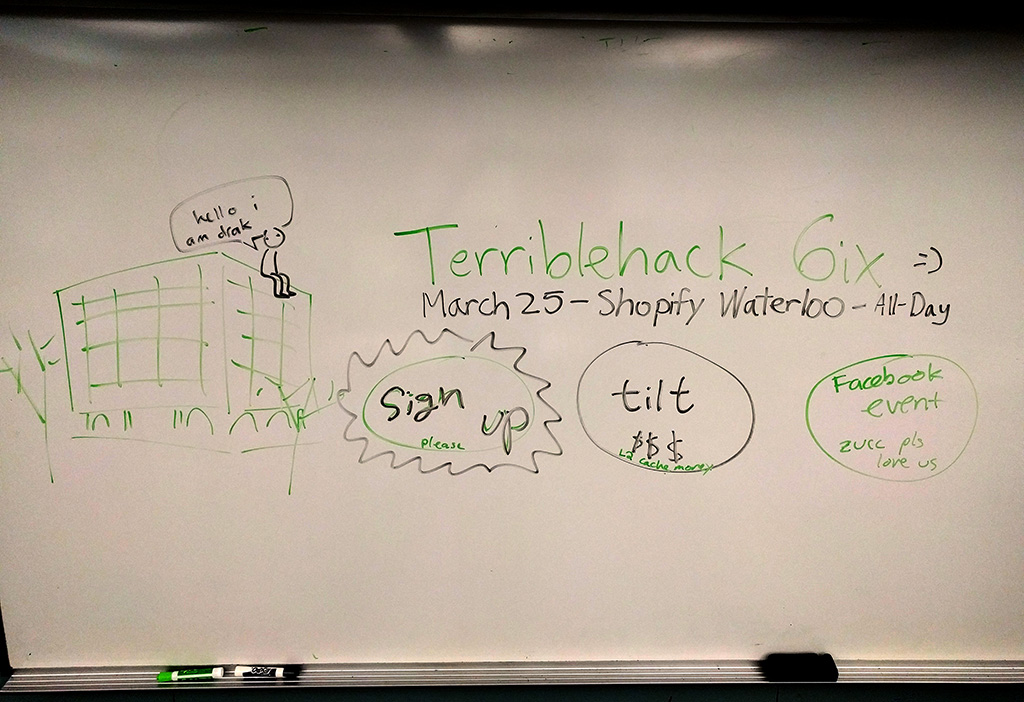 hello i
am drak
Terriblehack 6ix =)
March 25 - Shopify Waterloo - All-Day
Sign
up
please
tilt
$$$
L2 cache money
Facebook
event
zucc pls
love us